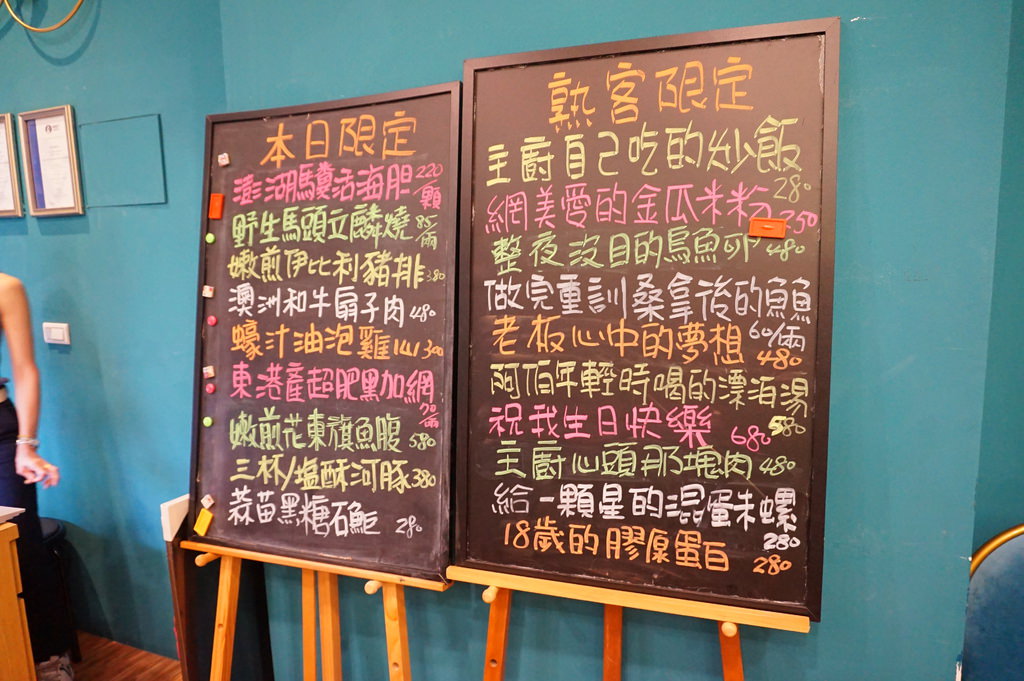 本日限定
澎湖馬糞活海胆 220/顆
野生馬頭立麟燒 85/兩
嫩煎伊比利豬排 380
澳洲和牛扇子肉 480
蠔汁油泡雞心 300
東港產超肥黑加網 70/兩
嫩煎花東旗魚腹 580
三杯/塩酥河豚 380
蒜苗黑糖石鮔 280
熟客限定
主廚自己吃的炒飯 280
網美愛的金瓜米粉 250
整夜沒目的烏魚卵 480
做完重訓桑拿後的魚魚 60/兩
老板心中的夢想 480
阿伯年輕時喝的漂泊湯 580
祝我生日快樂 680
主廚心頭那塊肉 480
給一顆星的混蛋朱螺 280
18歲的膠原蛋白 280